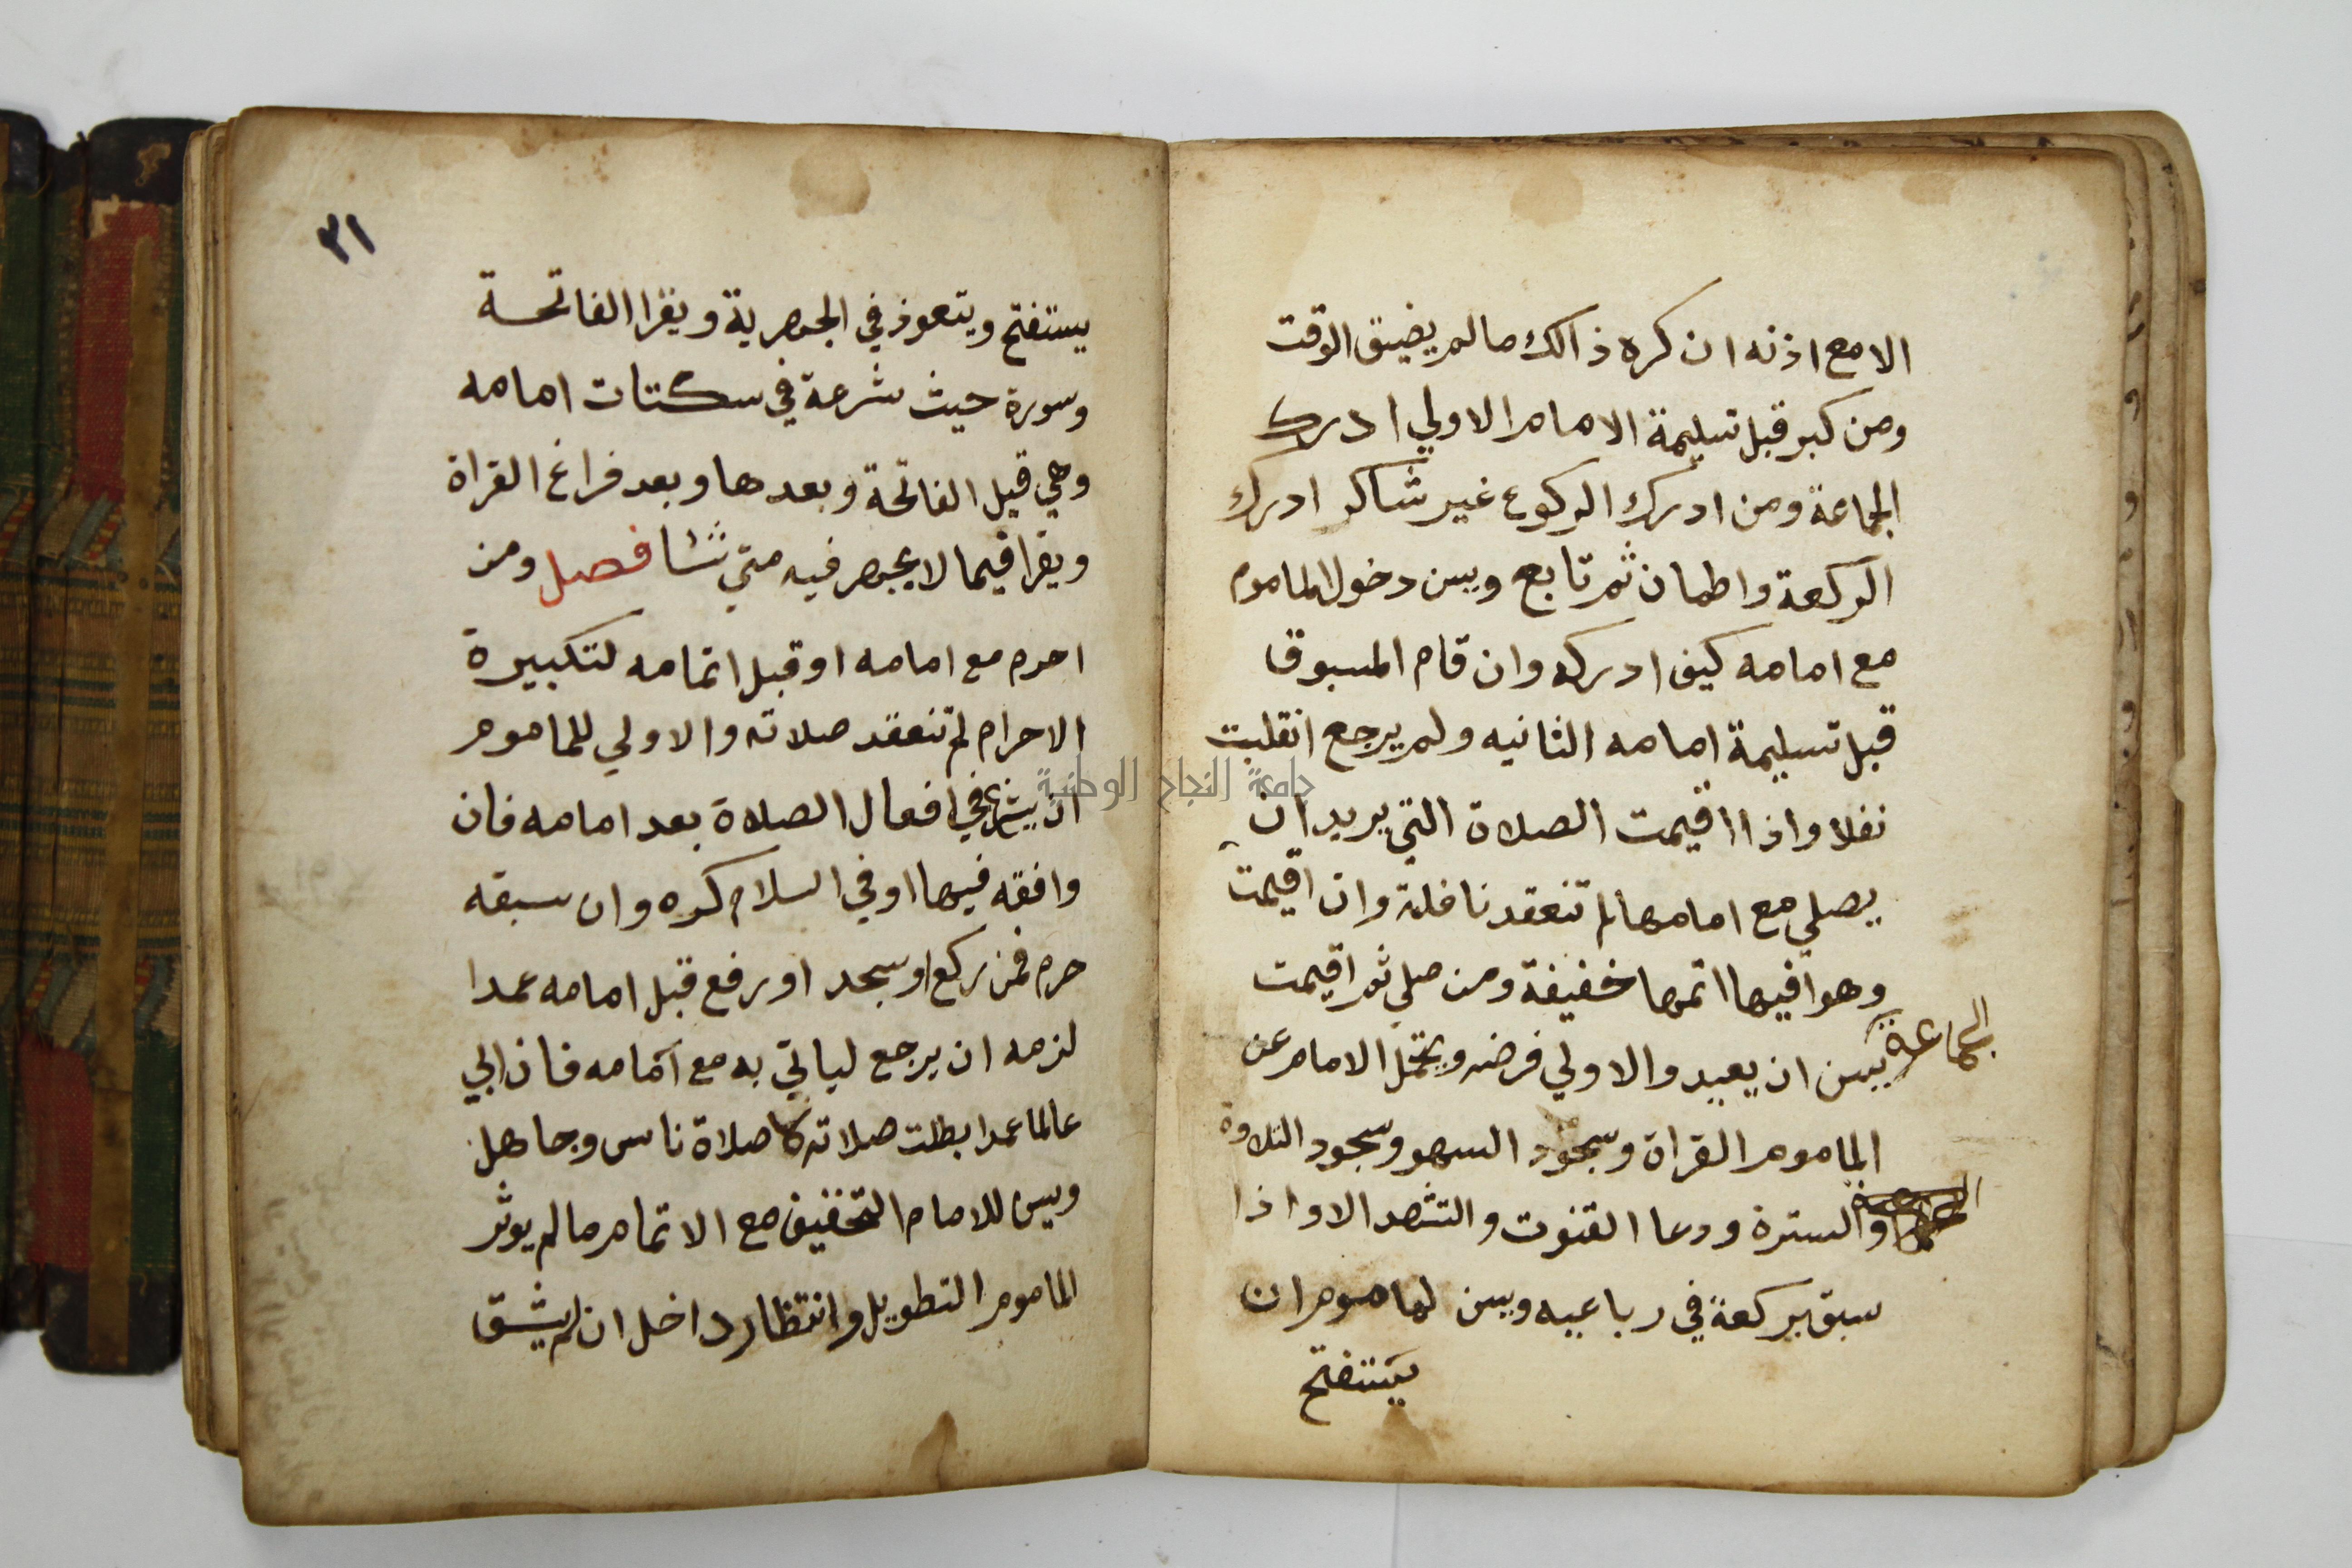 الا مع اذنه ان كره ذالك مالم يضيق الوقت
ومن كبر قبل تسليمة الامام الاولي ادرك
الجماعة ومن ادرك الركوع غير شاكر ادرك
الركعة واطمان ثم تابع ويسن دخول الماموم
مع امامه كيف ادركه وان قام المسبوق
قبل تسليمة امامه الثانيه ولم يرجع انقلبت
نفلا واذا اقيمت الصلاة التي يريد ان
يصلي مع امامها لم تنعقد نافلة وان اقيمت
وهو فيها اتمها خفيفة ومن صلي ثم اقيمت
الجماعة يسن ان يعيد والاولي فرضه ويتحمل الامام عن
الماموم القراة وسجود السهو وسجود التلاوة
والسترة ودعا القنوت والتشهد الاو اذا
سبق بركعة في رباعيه ويسن لماموم ان
يستفتح
٣١
يستفتح ويتعوذ في الجهرية ويقرا الفاتحة
وسورة حيث شرعة في سكتات امامه
وهي قبل الفاتحة وبعدها وبعد فراغ القراة
ويقرا فيما لا يجهر فيه متي شا فصل ومن
احرم مع امامه او قبل اتمامه لتكبيرة
الاحرام لم تنعقد صلاته والاولي للماموم
ان يشرع في افعال الصلاة بعد امامه فان
وافقه فيها او في السلام كره وان سبقه
حرم فمن ركع او سجد او رفع قبل امامه عمدا
لزمه ان يرجع لياتي به مع امامه فان ابي
عالما عمدا بطلت صلاته لا صلاة ناس وجاهل
ويسن للامام التخفيف مع الاتمام مالم يوثر
الماموم التطويل وانتظار داخل ان لم يشق
جامعة النجاح الوطنية